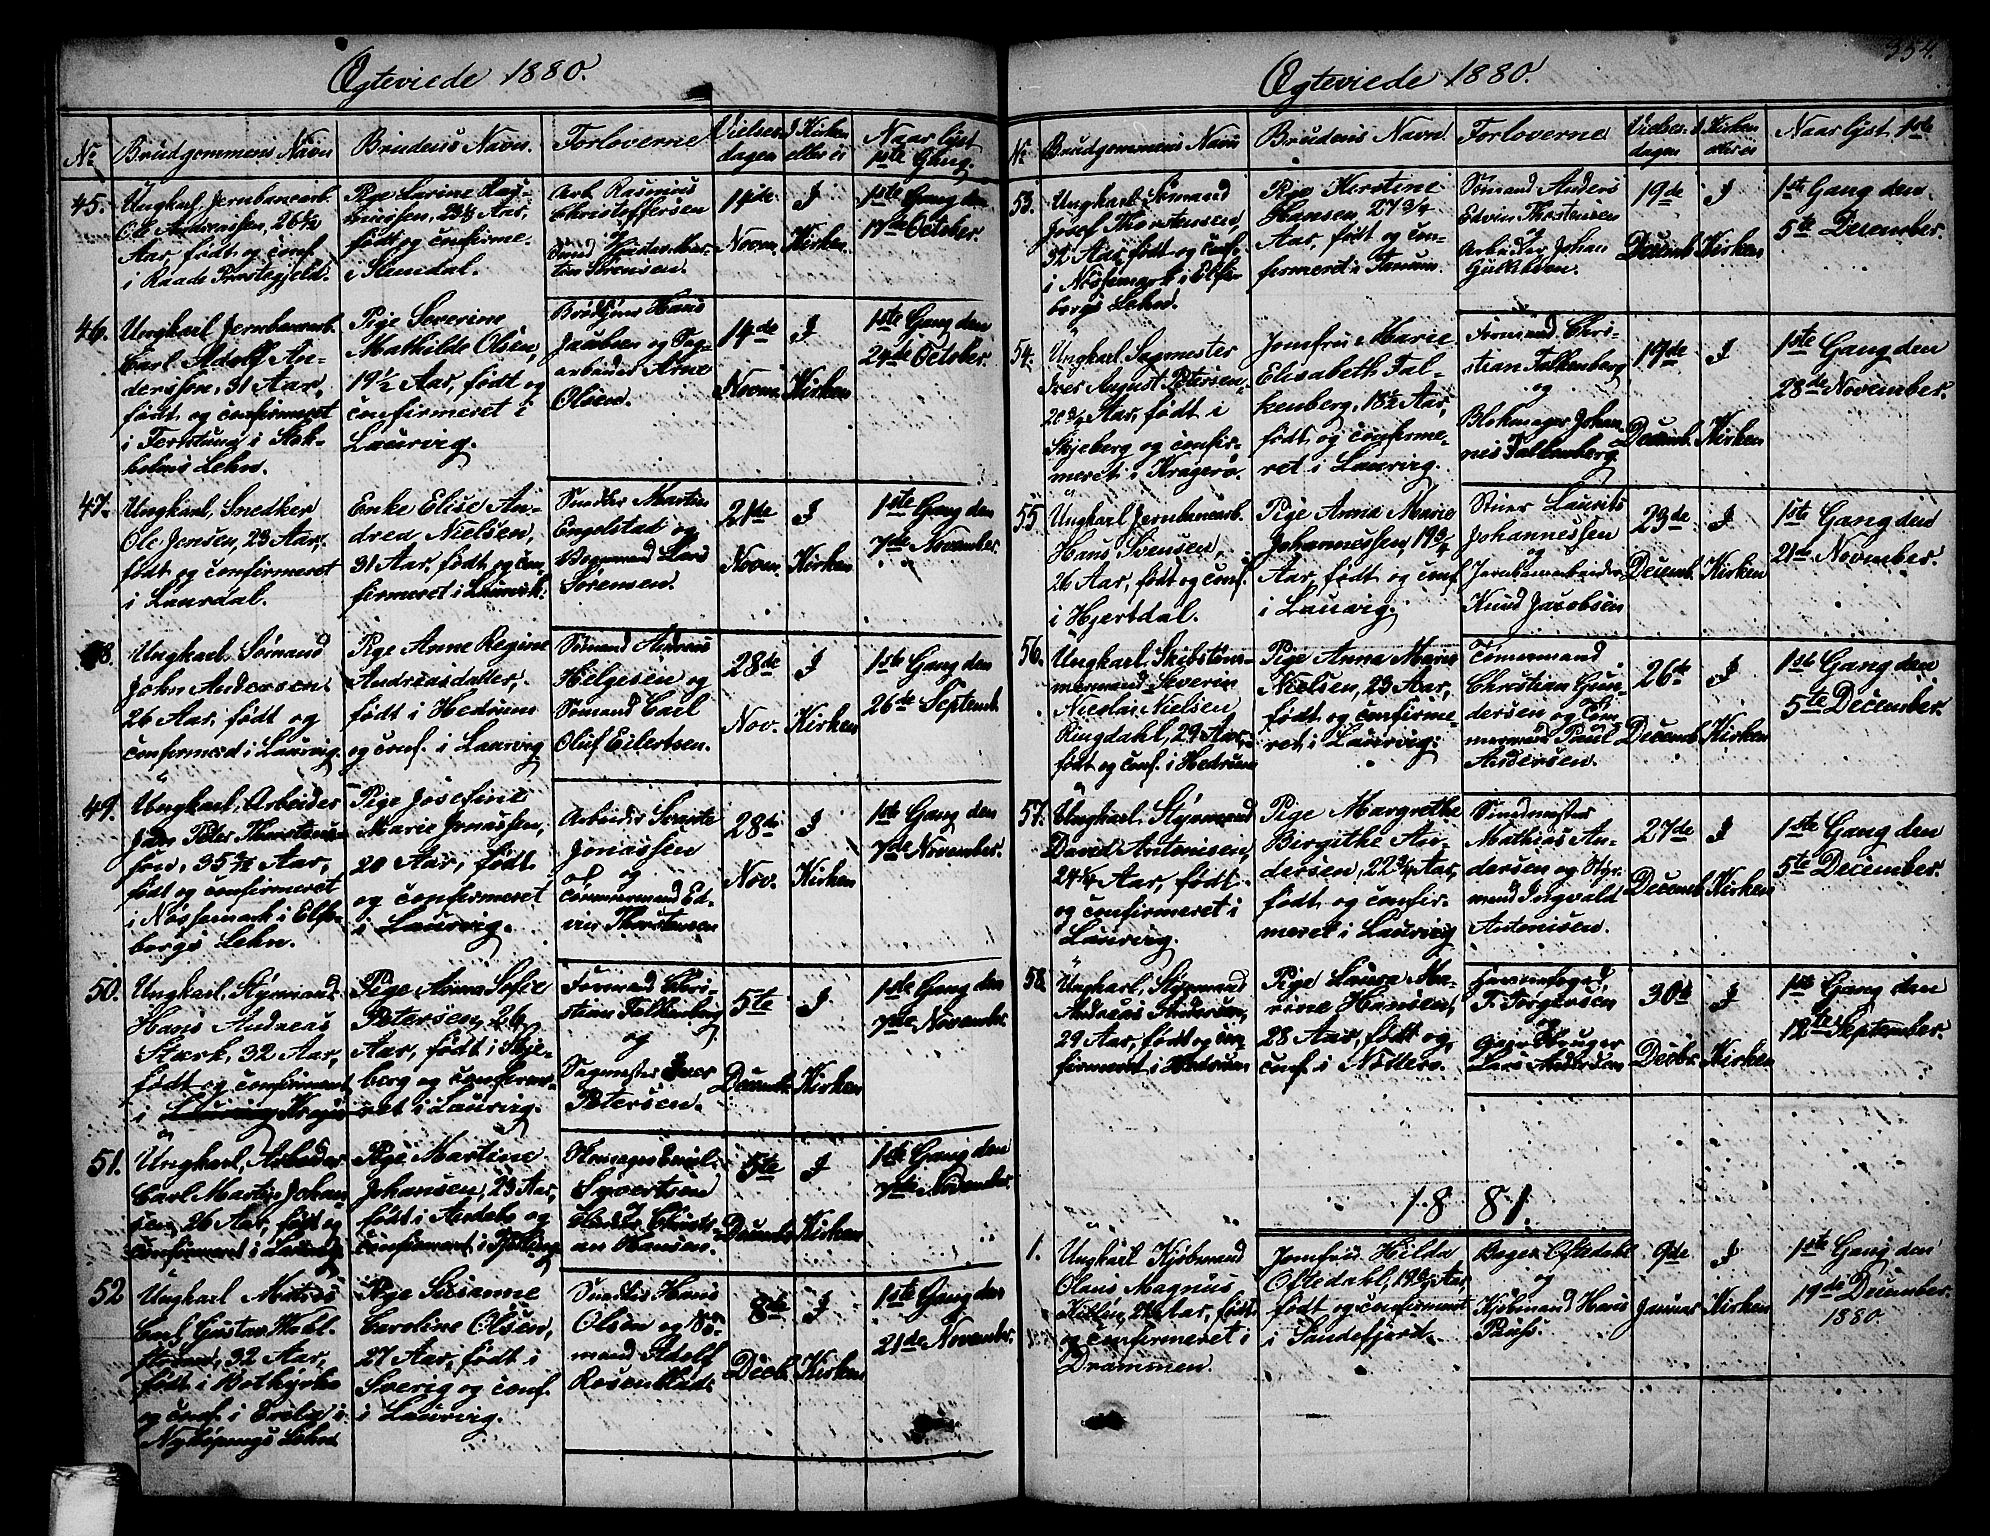 Ægteviede 1880.
No
Brudgommens Navn
Brudens Navn.
Forloverne
Vielses
dagen
I Kirken
eller ei
Naar lyst
1ste Gang.
45.
Ungkarl Jernbanearb.
Ole Andreassen, 26 1/2
Aar, født og conf.
i Raade Præstegjeld.
Pige Larine
født og confirme-
Arb. Rasmus
Christoffersen
og
Sörensen.
14de
Novm.
I
Kirken.
1ste Gang den
17de October.
46.
Ungkarl Jernbanearb.
Carl Adolf An-
derssen, 31 Aar,
født og confirmeret
i Stok-
holms Lehn.
Pige Severine
Mathilde Olsen,
19 1/2 Aar, født og
confirmeret i
Laurvig.
Hans
Jacobsen og Sag-
arbeider Arne
Olsen.
14de
Novm.
I
Kirken
1ste Gang den
24de October.
47.
Ungkarl, Snedker
Ole Jensen, 23 Aar,
født og confirmeret
i Laurdal.
Enke Elise An-
drea Nielsen,
31 Aar, født og con-
firmeret i Laurvik.
Snedker Martin
Engelstad og
Lars
Sörensen.
21de
Novm.
I
Kirken
1ste Gang den
7de November.
48.
Ungkarl Sømand
John Andersen
26 Aar, født og
confirmered i Laurvig.
Pige Anne Regine
Andreasdatter,
født i Hedrum
og conf. i Laurvig
Sømand Andreas
Helgesen og
Sømand Carl
Oluf Eilertsen.
28de
Nov.
I
Kirken
1ste Gang den
26de Septemb.
49.
Ungkarl, Arbeider
Jan Peter Thorsten-
sen, 35 1/2 Aar,
født og confirmeret
i Nössemark i Elfs-
borgs Lehn.
Pige Josefine
Marie Jonassen,
20 Aar, født
og confirmeret
i Laurvig.
Arbeider
Jonassen
og
Tömmermand Ed-
vin Thorstensen
28de
Nov.
I
Kirken
1ste Gang den
7de November.
50.
Ungkarl, Styrmand
Hans Andreas
Stærk, 32 Aar,
født og confirmeret
i
Pige Anna Sofie
Petersen, 26
Aar, født i Skje-
berg og confirme-
ret i Laurvig.
Formand Chri-
stian Falkenberg
og
Sagmester Iver
Petersen.
5te
Decemb.
I
Kirken
1ste Gang den
7de November.
51.
Ungkarl, Arbeider
Carl Martin Johan-
sen, 26 Aar, født og
confirmeret i Laurvig
Pige Martine
Johansen, 23 Aar,
født i Andebo og
confirmeret i Kjölling
Emil
Syvertsen
og
Christi-
an Hansen.
5te
Decemb.
I
Kirken
1ste Gang den
7de November.
52
Ungkarl
Carl Gustav
32 Aar,
født i Botkyrka
og conf. i
Nyköpings Lehn
Pige Susanne
Caroline Olsen,
27 Aar, født i
Sverig og conf.
i Laurvig.
Snedker Hans
Olsen og Sö-
mand Adolf
Rosenblad.
8de
Decb.
I
Kirken
1ste Gang den
21de November.
354.
Ægteviede 1880.
No
Brudgommens Navn
Brudens Navn
Forloverne
Vielses
dagen
I Kirken
eller ei
Naar lyst 1ste
53.
Ungkarl Sömand
Josef Thorstensen,
31 Aar, født og conf.
i Nössemark i Elfs-
borgs Lehn.
Pige Kerstine
Hansen 27 3/4
Aar, født og con-
firmeret i Tanum.
Sömand Anders
Edvin Thorstensen
og
Arbeider Johan
Gulliksen.
19de
Decemb.
I
Kirken
1ste Gang den
5te December.
54.
Ungkarl Sagmester
Iver August Petersen,
20 3/4 Aar, født i
Skjeberg og confir-
meret i Kragerø.
Jomfru Marie
Elisabeth Fal-
kenberg, 18 1/2 Aar,
født og confirme-
ret i Laurvig.
Formand Chri-
stian Falkenberg
og
Blokmager Johan-
nes Falkenberg
19de
Decemb.
I
Kirken
1ste Gang den
28de November.
55
Ungkarl Jernbanearb.
Hans Svensen,
26 Aar, født og conf.
i Hjertdal.
Pige Anna Marie
Johannessen, 19 3/4
Aar, født og conf
i Laurvig.
Laurits
Johannessen
og
Jernbanearbeider
Knud Jacobsen
23de
Decemb.
I
Kirken
1ste Gang den
21de November.
56.
Ungkarl Skibstöm-
mermand Severin
Nicolai Nielsen
Ringdahl, 29 Aar,
født og conf. i Hedrum
Pige Anna Marie
Nielsen, 23 Aar,
født og confirme-
ret i Laurvig.
Tömmermand
Christian Gun-
dersen og Töm-
mermand Paul
Andersen.
26de
Decemb
I
Kirken
1ste Gang den
5te December.
57.
Ungkarl Styrmand
David Antonisen,
24 3/4 Aar, født
og confirmeret i
Laurvig.
Pige Margrethe
Birgithe An-
dersen, 22 3/4 Aar,
født og confir-
meret i Laurvig
Smedmester
Mathias An-
dersen og Styr-
mand Ingvald
Antonisen.
27de
Decemb.
I
Kirken
1ste Gang den
5te December.
58.
Ungkarl Styrmand
Andreas Andersen,
29 Aar, født og con-
firmeret i Hedrum
Pige Laura Ma-
rine Hansen,
28 Aar, født og
conf. i Nøtterø.
Havnefoged,
F. Jörgensen
Lars Andersen
30te
Decbr.
I
Kirken
1ste Gang den
12te September.
1881.
1.
Ungkarl Kjøbmand
Olaus Magnus
Aar, født
og confirmeret i
Drammen.
Jomfru Hilda
Oftedahl, 19 3/4 Aar
født og confirmeret
i Sandefjord.
Bager Oftedahl
og
Kjøbmand Hans
Pauss.
9de
Januar
I
Kirken
1ste Gang den
19de December.
1880.